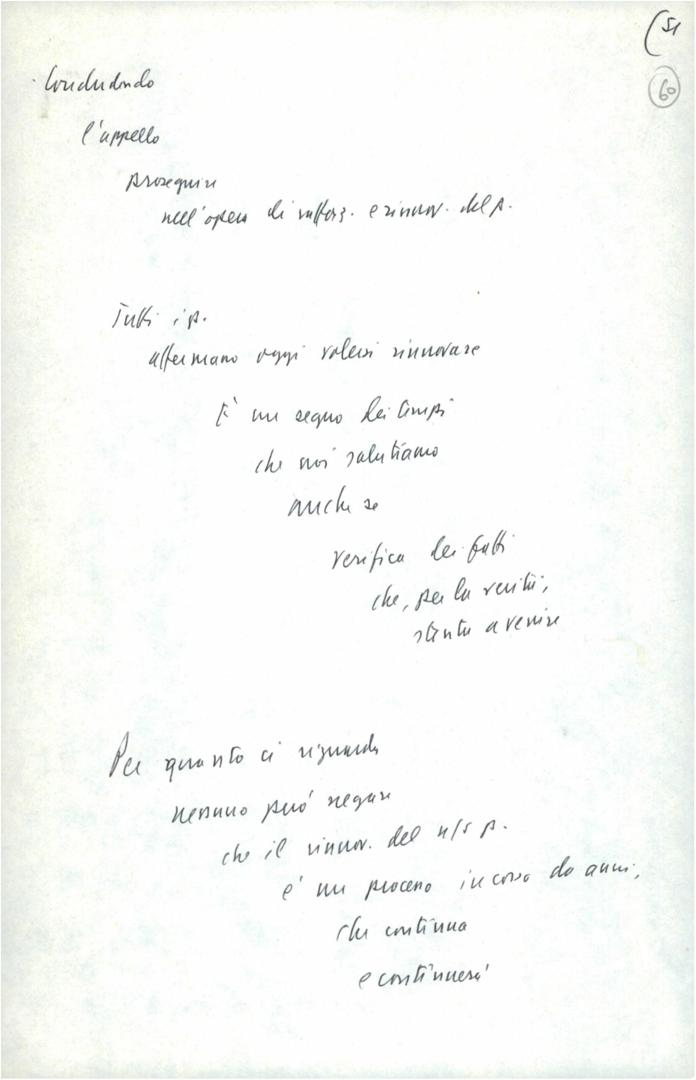 (51
60
Concludendo
l'appello
proseguire
nell'opera di rafforz. e rinnov. del p.
Tutti i p.
affermano oggi volersi rinnovare
È un segno dei tempi
che noi salutiamo
anche se
verifica dei fatti
che, per la verità,
stenta a venire
Per quanto ci riguarda
nessuno può negare
che il rinnov. del n/s p.
è un processo in corso da anni,
che continua
e continuerà